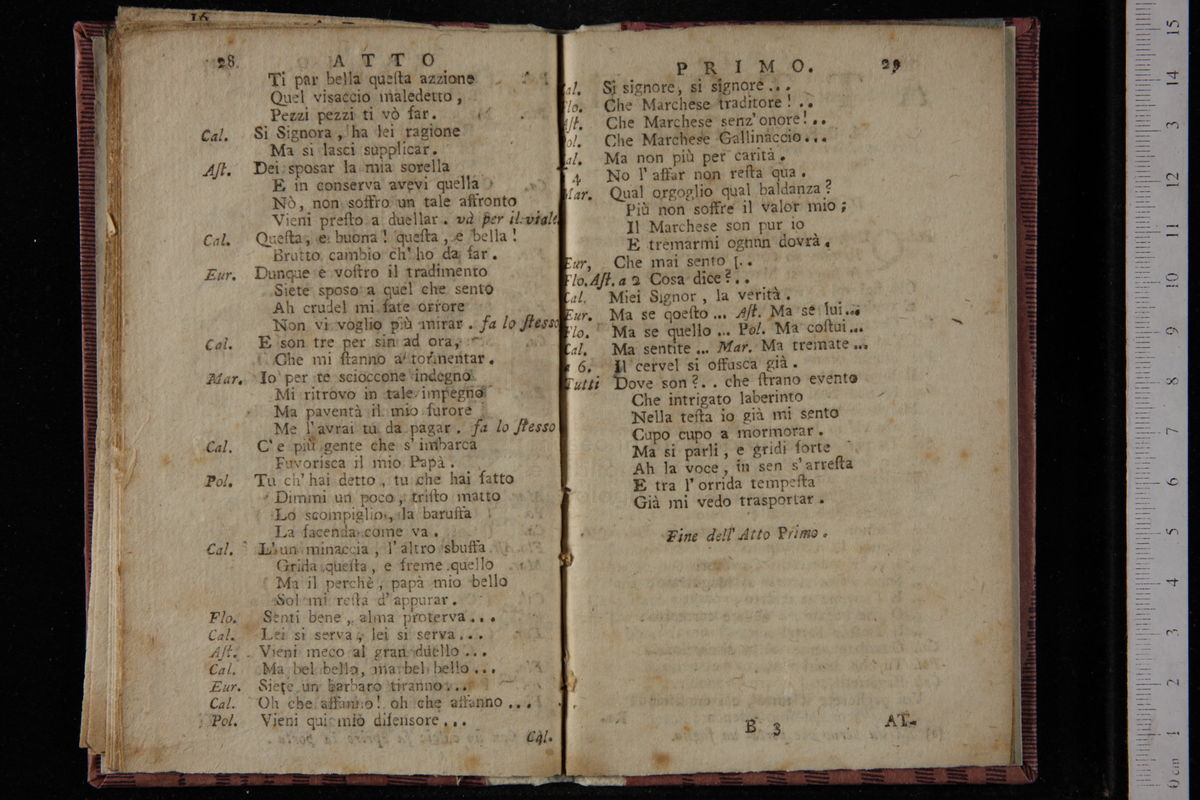 16
28
ATTO
Ti par bella questa azzione
Quel visaccio maledetto,
Pezzi pezzi ti vò far.
Cal. Si Signora, ha lei ragione
Ma si lasci supplicar.
Ast. Dei sposar la mia sorella
E in conserva avevi quella
Nò, non soffro un tale affronto
Vieni presto a duellar. và per il viale
Cal. Questa, e buona! questa, e bella!
Brutto cambio ch' ho da far.
Eur. Dunque è vostro il tradimento
Siete sposo a quel che sento
Ah crudel mi fate orrore
Non vi voglio più mirar. fa lo stesso
Cal. E son tre per sin ad ora,
Che mi stanno a tormentar.
Mar. Io per te scioccone indegno
Mi ritrovo in tale impegno
Ma paventà il mio furore
Me l'avrai tu da pagar. fa lo stesso
Cal. C'e più gente che s' imbarca
Fuvorisca il mio Papà.
Pol. Tu ch' hai detto, tu che hai fatto
Dimmi un poco, tristo matto
Lo scompiglio, la baruffa
La facenda come va.
Cal. L'un minaccia, l'altro sbuffa
Grida questa, e freme quello
Ma il perchè, papà mio bello
Sol mi resta d' appurar.
Flo. Senti bene, alma proterva...
Cal. Lei si serva, lei si serva...
Ast. Vieni meco al gran duello...
Cal. Ma bel bello, ma bel bello...
Eur. Siete un barbaro tiranno...
Cal. Oh che affanno! oh che affanno...
Pol. Vieni qui mio difensore...
Cal.
PRIMO.
29
Cal. Si signore, si signore...
Flo. Che Marchese traditore!..
Ast. Che Marchese senz'onore!..
Pol. Che Marchese Gallinaccio...
Cal. Ma non più per carità.
4 No l'affar non resta quà.
Mar. Qual orgoglio qual baldanza?
Più non soffre il valor mio;
Il Marchese son pur io
E tremarmi ognun dovrà.
Eur, Che mai sento!..
Flo. Ast. a 2 Cosa dice?..
Cal. Miei Signor, la verità.
Eur. Ma se qoesto... Ast. Ma se lui...
Flo. Ma se quello... Pol. Ma costui...
Cal. Ma sentite... Mar. Ma tremate...
a 6. Il cervel si offusca già.
Tutti Dove son?.. che strano evento
Che intrigato laberinto
Nella testa io già mi sento
Cupo cupo a mormorar.
Ma si parli, e gridi forte
Ah la voce, in sen s'arresta
E tra l'orrida tempesta
Già mi vedo trasportar.
Fine dell' Atto Primo.
B 3
AT-
0 cm 1 2 3 4 5 6 7 8 9 10 11 12 13 14 15